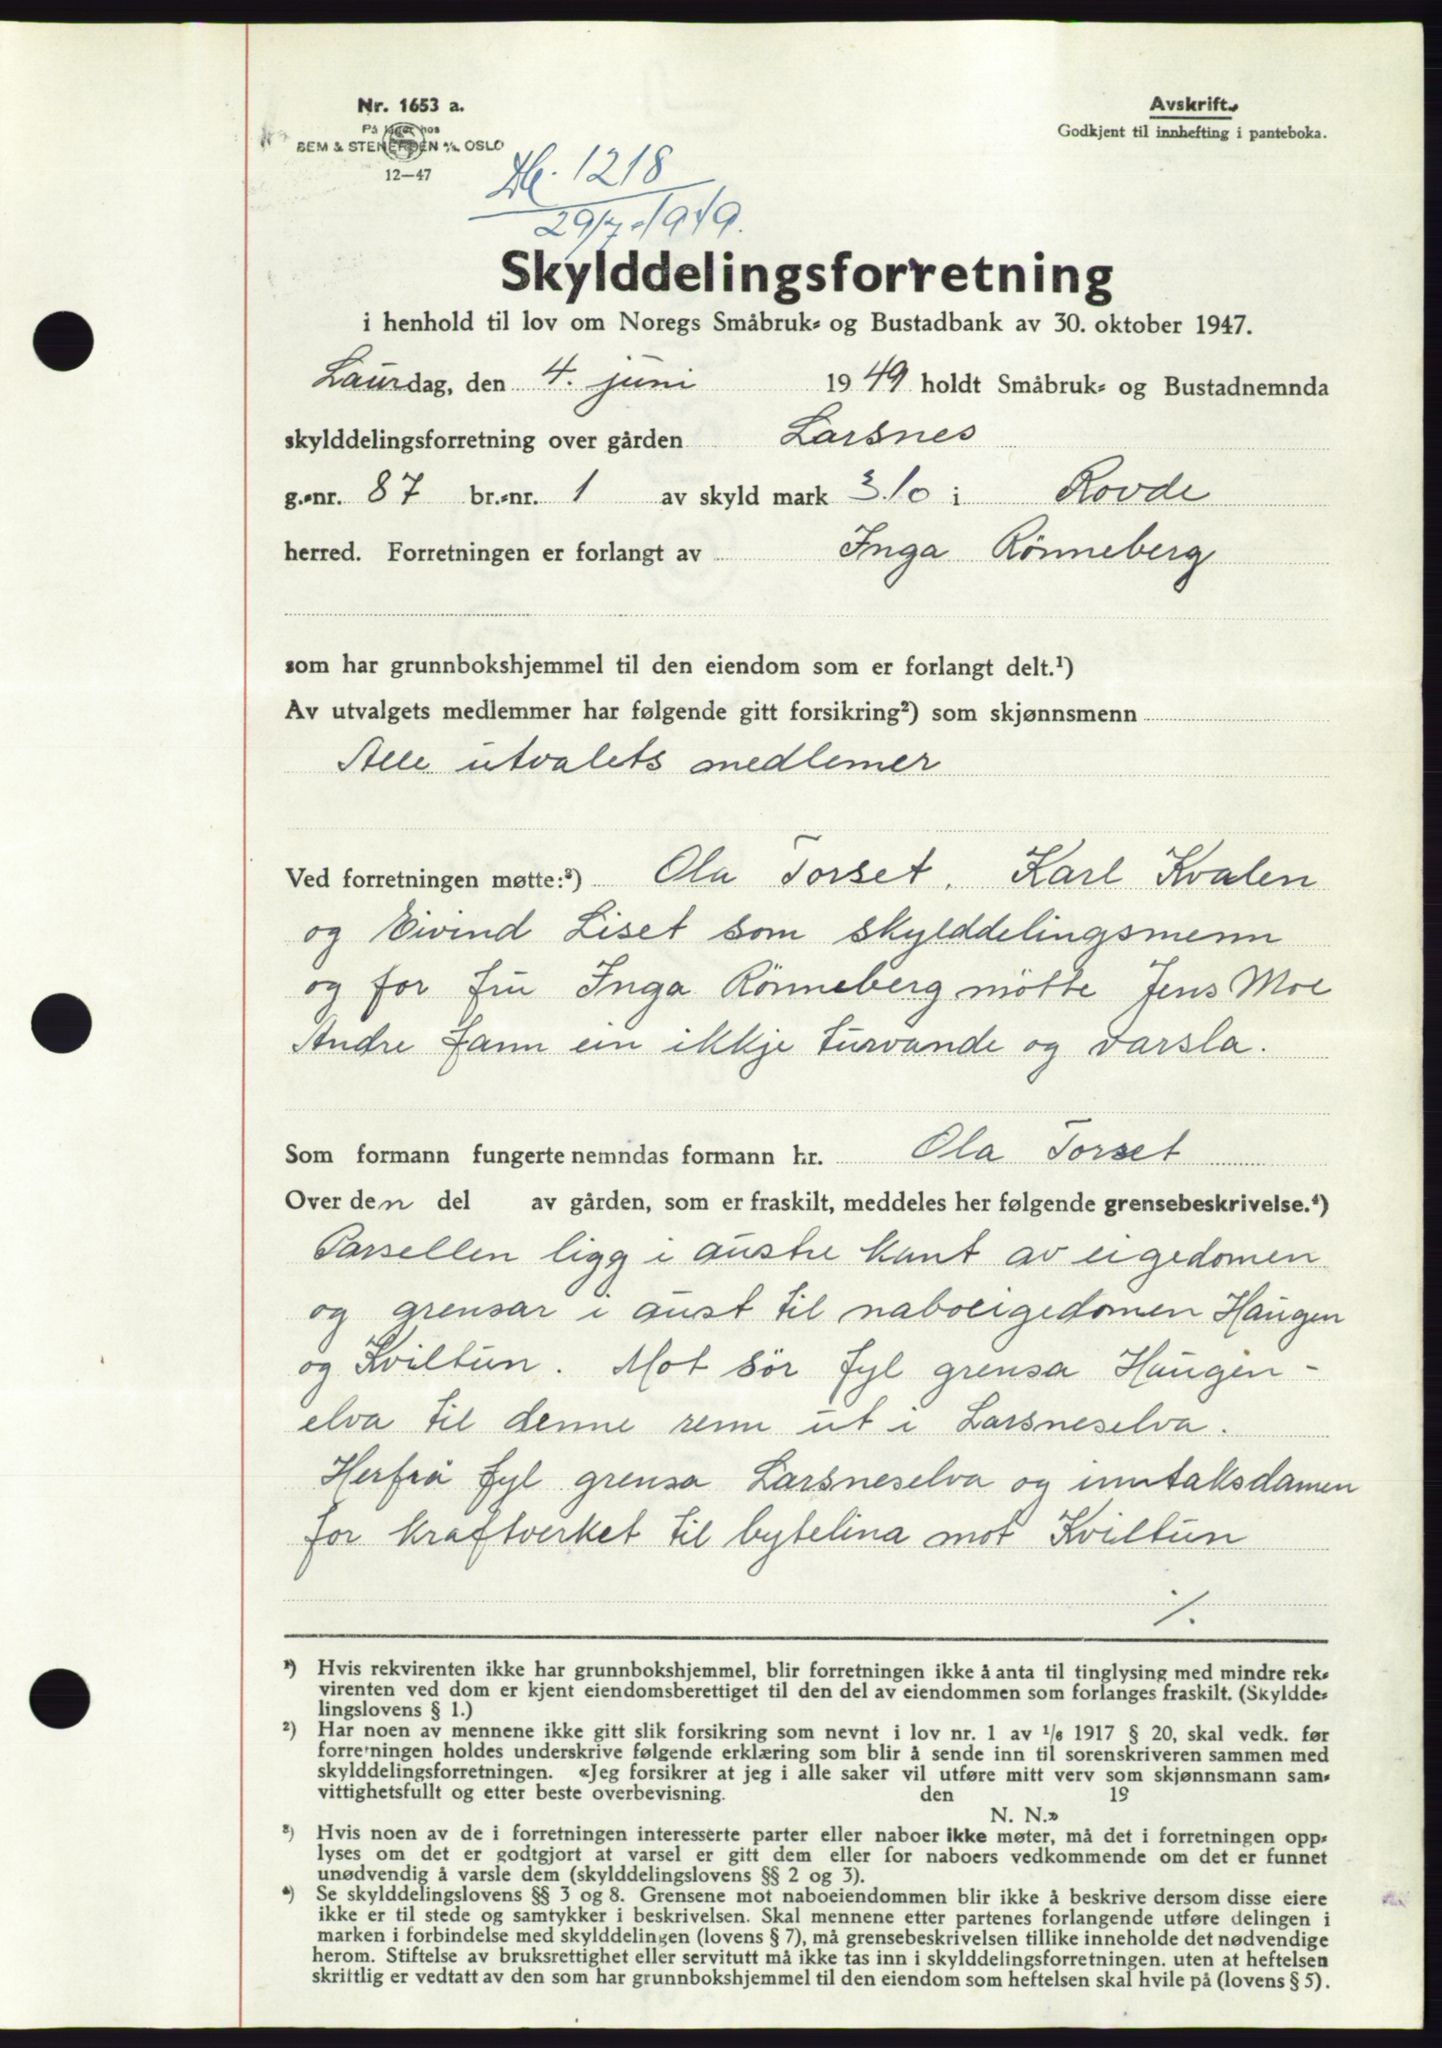 Nr. 1653 a.
På lager hos
SEM & STENERSEN A/S OSLO
12—47
Avskrift.
Godkjent til innhefting i panteboka.
Db. 1218
29/7-1949.
Skylddelingsforretning
i henhold til lov om Noregs Småbruk- og Bustadbank av 30. oktober 1947.
Laurdag, den 4. juni 1949 holdt Småbruk- og Bustadnemnda
skylddelingsforretning over gården Larsnes
g.-nr. 87 br.-nr. 1 av skyld mark 3.10 i Rovde
herred. Forretningen er forlangt av Inga Rønneberg
som har grunnbokshjemmel til den eiendom som er forlangt delt.¹)
Av utvalgets medlemmer har følgende gitt forsikring²) som skjønnsmenn
Alle utvalets medlemer
Ved forretningen møtte:³) Ola Torset, Karl Kvalen
og Eivind Liset som skylddelingsmenn
og for fru Inga Rønneberg møtte Jens Moe
Andre fann ein ikkje turvande og varsla.
Som formann fungerte nemndas formann hr. Ola Torset
Over den del av gården, som er fraskilt, meddeles her følgende grensebeskrivelse.⁴)
Parsellen ligg i austre kant av eigedomen
og grensar i aust til naboeigedomen Haugen
og Kviltun. Mot sør fyl grensa Haugen-
elva til denne renn ut i Larsneselva.
Herfrå fyl grensa Larsneselva og inntaksdamen
for kraftverket til bytelina mot Kviltun
./.
¹) Hvis rekvirenten ikke har grunnbokshjemmel, blir forretningen ikke å anta til tinglysing med mindre rek-
virenten ved dom er kjent eiendomsberettiget til den del av eiendommen som forlanges fraskilt. (Skyldde-
lingslovens § 1.)
²) Har noen av mennene ikke gitt slik forsikring som nevnt i lov nr. 1 av ¹/₆ 1917 § 20, skal vedk. før
forretningen holdes underskrive følgende erklæring som blir å sende inn til sorenskriveren sammen med
skylddelingsforretningen. «Jeg forsikrer at jeg i alle saker vil utføre mitt verv som skjønnsmann sam-
vittighetsfullt og etter beste overbevisning. den 19
N. N.»
³) Hvis noen av de i forretningen interesserte parter eller naboer ikke møter, må det i forretningen opp-
lyses om det er godtgjort at varsel er gitt dem eller for naboers vedkommende om det er funnet
unødvendig å varsle dem (skylddelingslovens §§ 2 og 3).
⁴) Se skylddelingslovens §§ 3 og 8. Grensene mot naboeiendommen blir ikke å beskrive dersom disse eiere
ikke er til stede og samtykker i beskrivelsen. Skal mennene etter partenes forlangende utføre delingen i
marken i forbindelse med skylddelingen (lovens § 7), må grensebeskrivelsen tillike inneholde det nødvendige
herom. Stiftelse av bruksrettighet eller servitutt må ikke tas inn i skylddelingsforretningen. uten at heftelsen
skrittlig er vedtatt av den som har grunnbokshjemmel til den eiendom som heftelsen skal hvile på (lovens § 5).